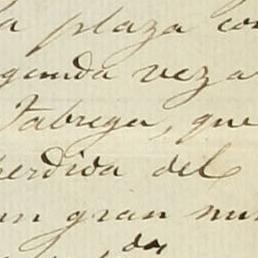 a plaza con
egunda vez a
Fabrega, que
perdida del
un gran nu
da